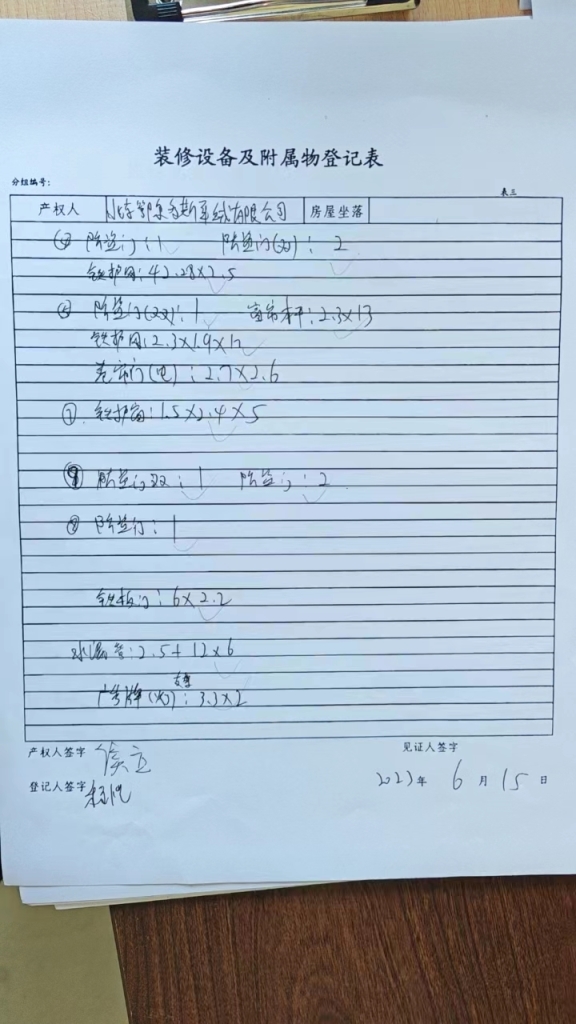 装修设备及附属物登记表
分组编号：
表三
产权人 北京鄂尔多斯羊绒有限公司 房屋坐落
防盗门：1 防盗门(双)：2
铁护网：42.28×2.5
防盗门(双)：1 窗帘杆：2.3×13
铁护网：2.3×1.9×12
卷帘门(电)：2.7×2.6
① 铁护窗：1.5×2.4×5
⑨ 防盗门双：1 防盗门：2
⑧ 防盗门：1
铁板门：6×2.2
水漏管：2.5+12×6
广告牌(双)：3.3×2
产权人签字
见证人签字
登记人签字
2023年 6月 15日